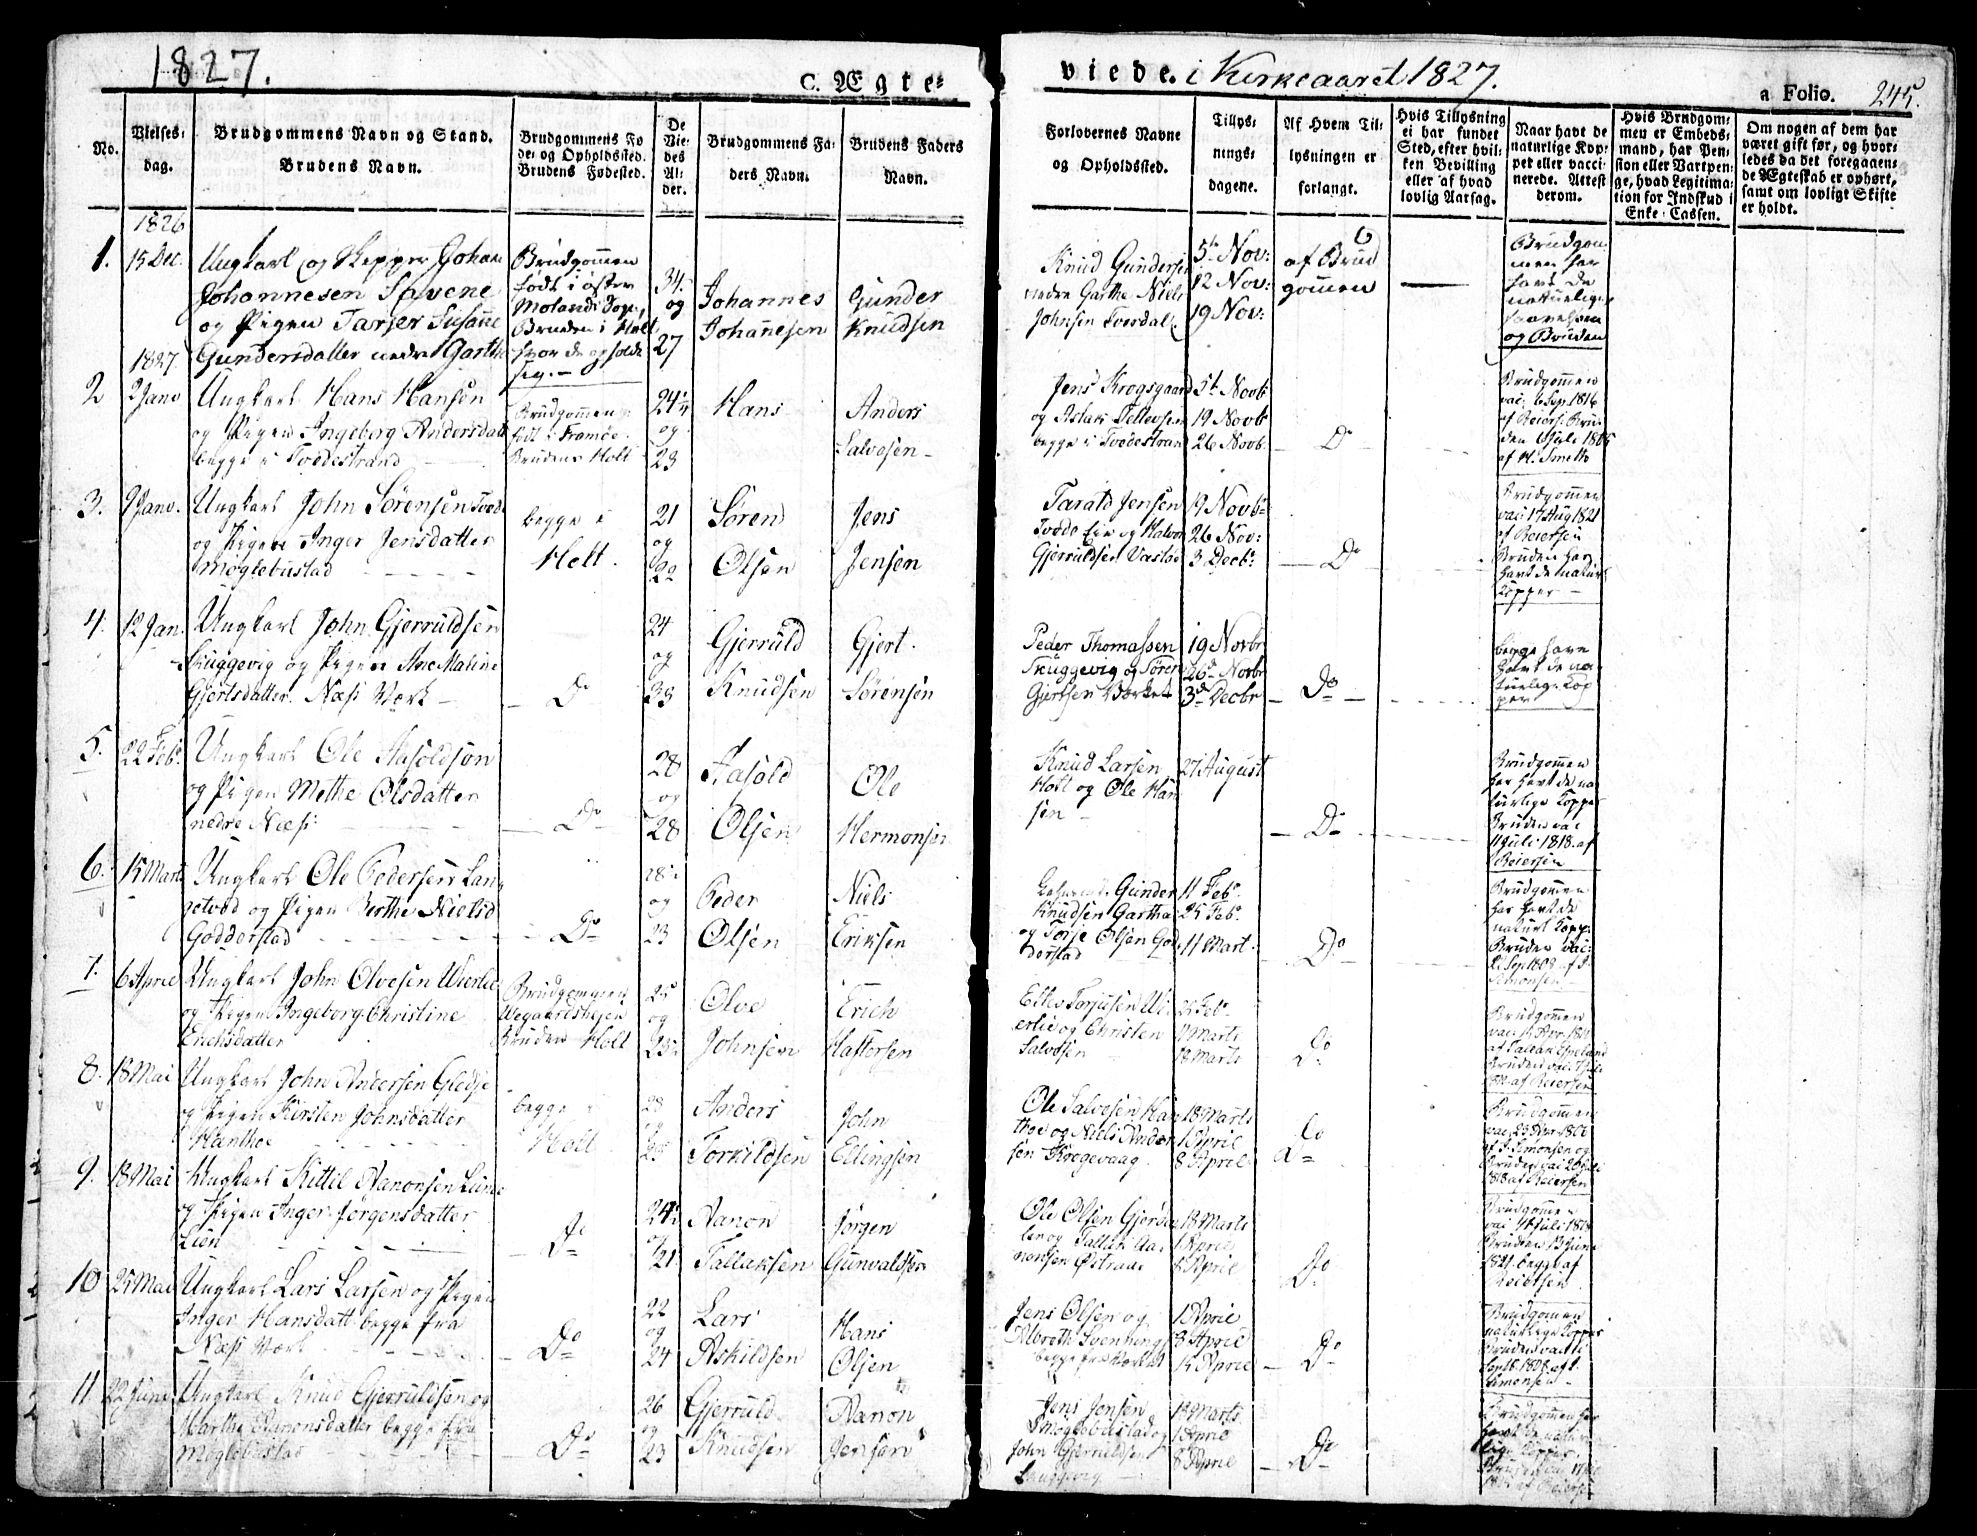 1827.
C. Ægte-
viede. i Kirkeaaret 1827.
a Folio. 245.
No.
Vielses-
dag.
Brudgommens Navn og Stand.
Brudens Navn.
Brudgommens Fø
de- og Opholdssted.
Brudens Fødested.
De
Vie-
des
Al-
der.
Brudgommens Fa-
ders Navn.
Brudens Faders
Navn.
Forlovernes Navne
og Opholdssted.
Tillys-
nings-
dagene.
Af Hvem Til-
lysningen er
forlangt.
Hvis Tillysning
ei har fundet
Sted, efter hvil-
ken Bevilling
eller af hvad
lovlig Aarsag.
Naar havt de
naturlige Kop-
per eller vacci-
nerede. Attest
derom.
Hvis Brudgom-
men er Embeds-
mand, har Pen-
sion eller Vartpen-
ge, hvad Legitima-
tion for Indskud i
Enke-Cassen.
Om nogen af dem har
været gift før, og hvor-
ledes da det foregaaen-
de Ægteskab er ophørt,
samt om lovligt Skifte
er holdt.
1826
1. 15 Dec.
Ungkarl og Skipper Johan
Johannesen
og Pigen Tarjer Susanne
Gundersdatter nedre Garthe
Brudgommen
født i østre
Molands Sogn,
Bruden i Holt
hvor de opholde
sig.
34
og
27
Johannes
Johannesen
Gunder
Knudsen
Knud Gundersen
nedre Garthe Niels
Johnsen
5te Nov:
12 Nov:
19 Nov:
af Brud
gommen
Brudgom
men har
havt de
naturlige
og Bruden
1827
2 2 Janv
Ungkarl Hans Hansen
og Pigen Ingeborg Andersdatt
begge i Tvedestrand
Brudgommen
født i Fromøe
Bruden Holt
24 1/4
og
23
Hans
Anders
Salvesen
Jens Krogsgaard
og Aslak Tellevsen
begge i Tvedestrand
5te Novb
19 Novb
26 Novb.
Do
Brudgommen
vac: 6 Sep. 1816
af Reiers. Bru-
den
af H. Smith
3. 2 Janv.
Ungkarl John Sørensen
og Pigen Inger Jensdatter
Møglebustad
begge i
Holt.
21
og
22
Søren
Olsen
Jens
Jensen
Tarald Jensen
Tvede Eie og Halvor
Gjerruldsen
19 Novb
26 Nov:
3 Decb:
Do
Brudgommen
vac: 17 Aug 1821
af Reiersen
Bruden har
havt de naturl
Kopper
4. 12 Jan.
Ungkarl John Gjerruldsen
Skuggevig og Pigen Ane Maline
Gjertsdatter. Næss Værk
Do
24
og
33
Gjerruld
Knudsen
Gjert.
Sørensen
Peder Thomassen
Skuggevig og Søren
Gjertsen Værket
19 Novbr
26de Novbr
3de Decbr
Do
begge have
havt de na-
turlige Kop
per
5. 22 Feb.
Ungkarl Ole Aasoldsøn
og Pigen Methe Olsdatter
nedre Næss
Do
28
og
28
Aasold
Olsen
Ole
Hermonsen
Knud Larsen
Holt og Ole Han
sen
27 August
Do
Brudgommen
har havt de na-
turlige Kopper
Bruden vac
11 Juli 1818 af
Reiersen
6. 15 Marts
Ungkarl Ole Pedersen Lan
getvæd og Pigen Berthe Nielsd
Godderstad
Do
28
og
23
Peder
Olsen
Niels
Eriksen
Gunder
Knudsen Garthe
og Torje Olsen God-
derstad
11 Feb.
25 Feb.
11 Mart.
Do
Brudgommen
har havt de
naturl Kopp:
Bruden vac:
Sep 1808 af
Simonsen
7. 6 April
Ungkarl John Olvesen Wierlie
og Pigen Ingeborg Christine
Erichsdatter
Brudgommen
Wegaardsheien
Bruden Holt
25
og
23
Olve
Johnsen
Erich
Hattersen
Ellev Torjusen Wi-
erlie og Christen
Salvesen
25 Feb.
4 Marts
18 Marts
Do
Brudgommen
af Tallak Espeland
Bruden vac:
af Reiersen
8. 18 Mai
Ungkarl John Andersen Gledje
og Pigen Kirsten Johnsdatter
Hanthoe
begge i
Holt
28
og
25
Anders
Torkildsen
John
Ellingsen
Ole Salvesen Han
thoe og Niels Ander
sen Krogevaag.
18 Marts
1 April
8 April
Do
Brudgommen
af J. Simonsen og
Bruden vac
1818 af Reiersen
9. 18 Mai
Ungkarl Kittil Aanonsen Lune
og Pigen Inger Jørgensdatter
Lien
Do
24
og
21
Aanon
Tallaksen
Jørgen
Gunvaldsen
Ole Olsen
og Tallak Aa-
nonsen Østraae
18 Marts
1 April
8 April
Do
Brudgommen
vac 4 Juli 1818
Bruden 13 Juni
1821 begge af
Reiersen
10 25 Mai
Ungkarl Lars Larsen og Pigen
Inger Hansdatt. begge fra
Næss Værk
Do
22
og
24
Lars
Askildsen
Hans
Olsen
Jens Olsen og
Albreth Svenningsen
begge fra Værket
1 April
8 April
15 April
Do
Brudgommen
naturlige Kopper
Bruden vac
Septb. 1808 af
Simonsen
11. 22 Juni
Ungkarl Knud Gjerruldsen og
Marthe Aanonsdatter begge fra
Møglebustad
Do
26
og
23
Gjerruld
Knudsen
Aanon
Jensen
Jens Jensen
Møglebustad og
John Gjerruldsen
18 Marts
1 April
8 April
Do
Brudgommen har
havt de natur-
lige Kopper
af Reiersen